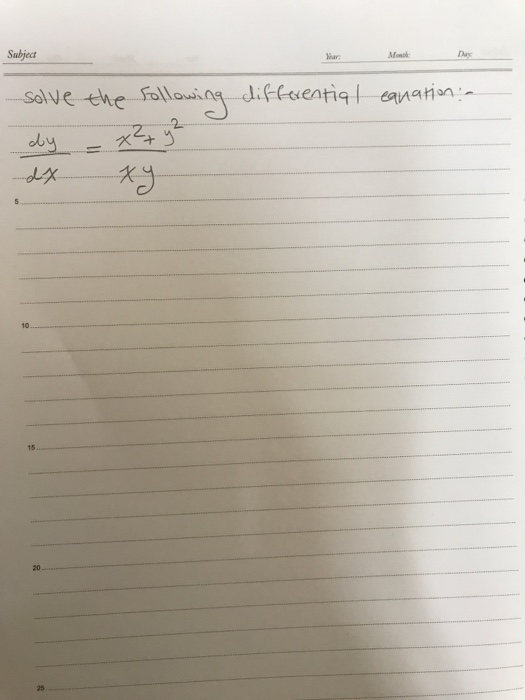 Subject Year: Month: Day:
solve the following differential equation:-
dy/dx = x²+y²/xy
5
10
15
20
25